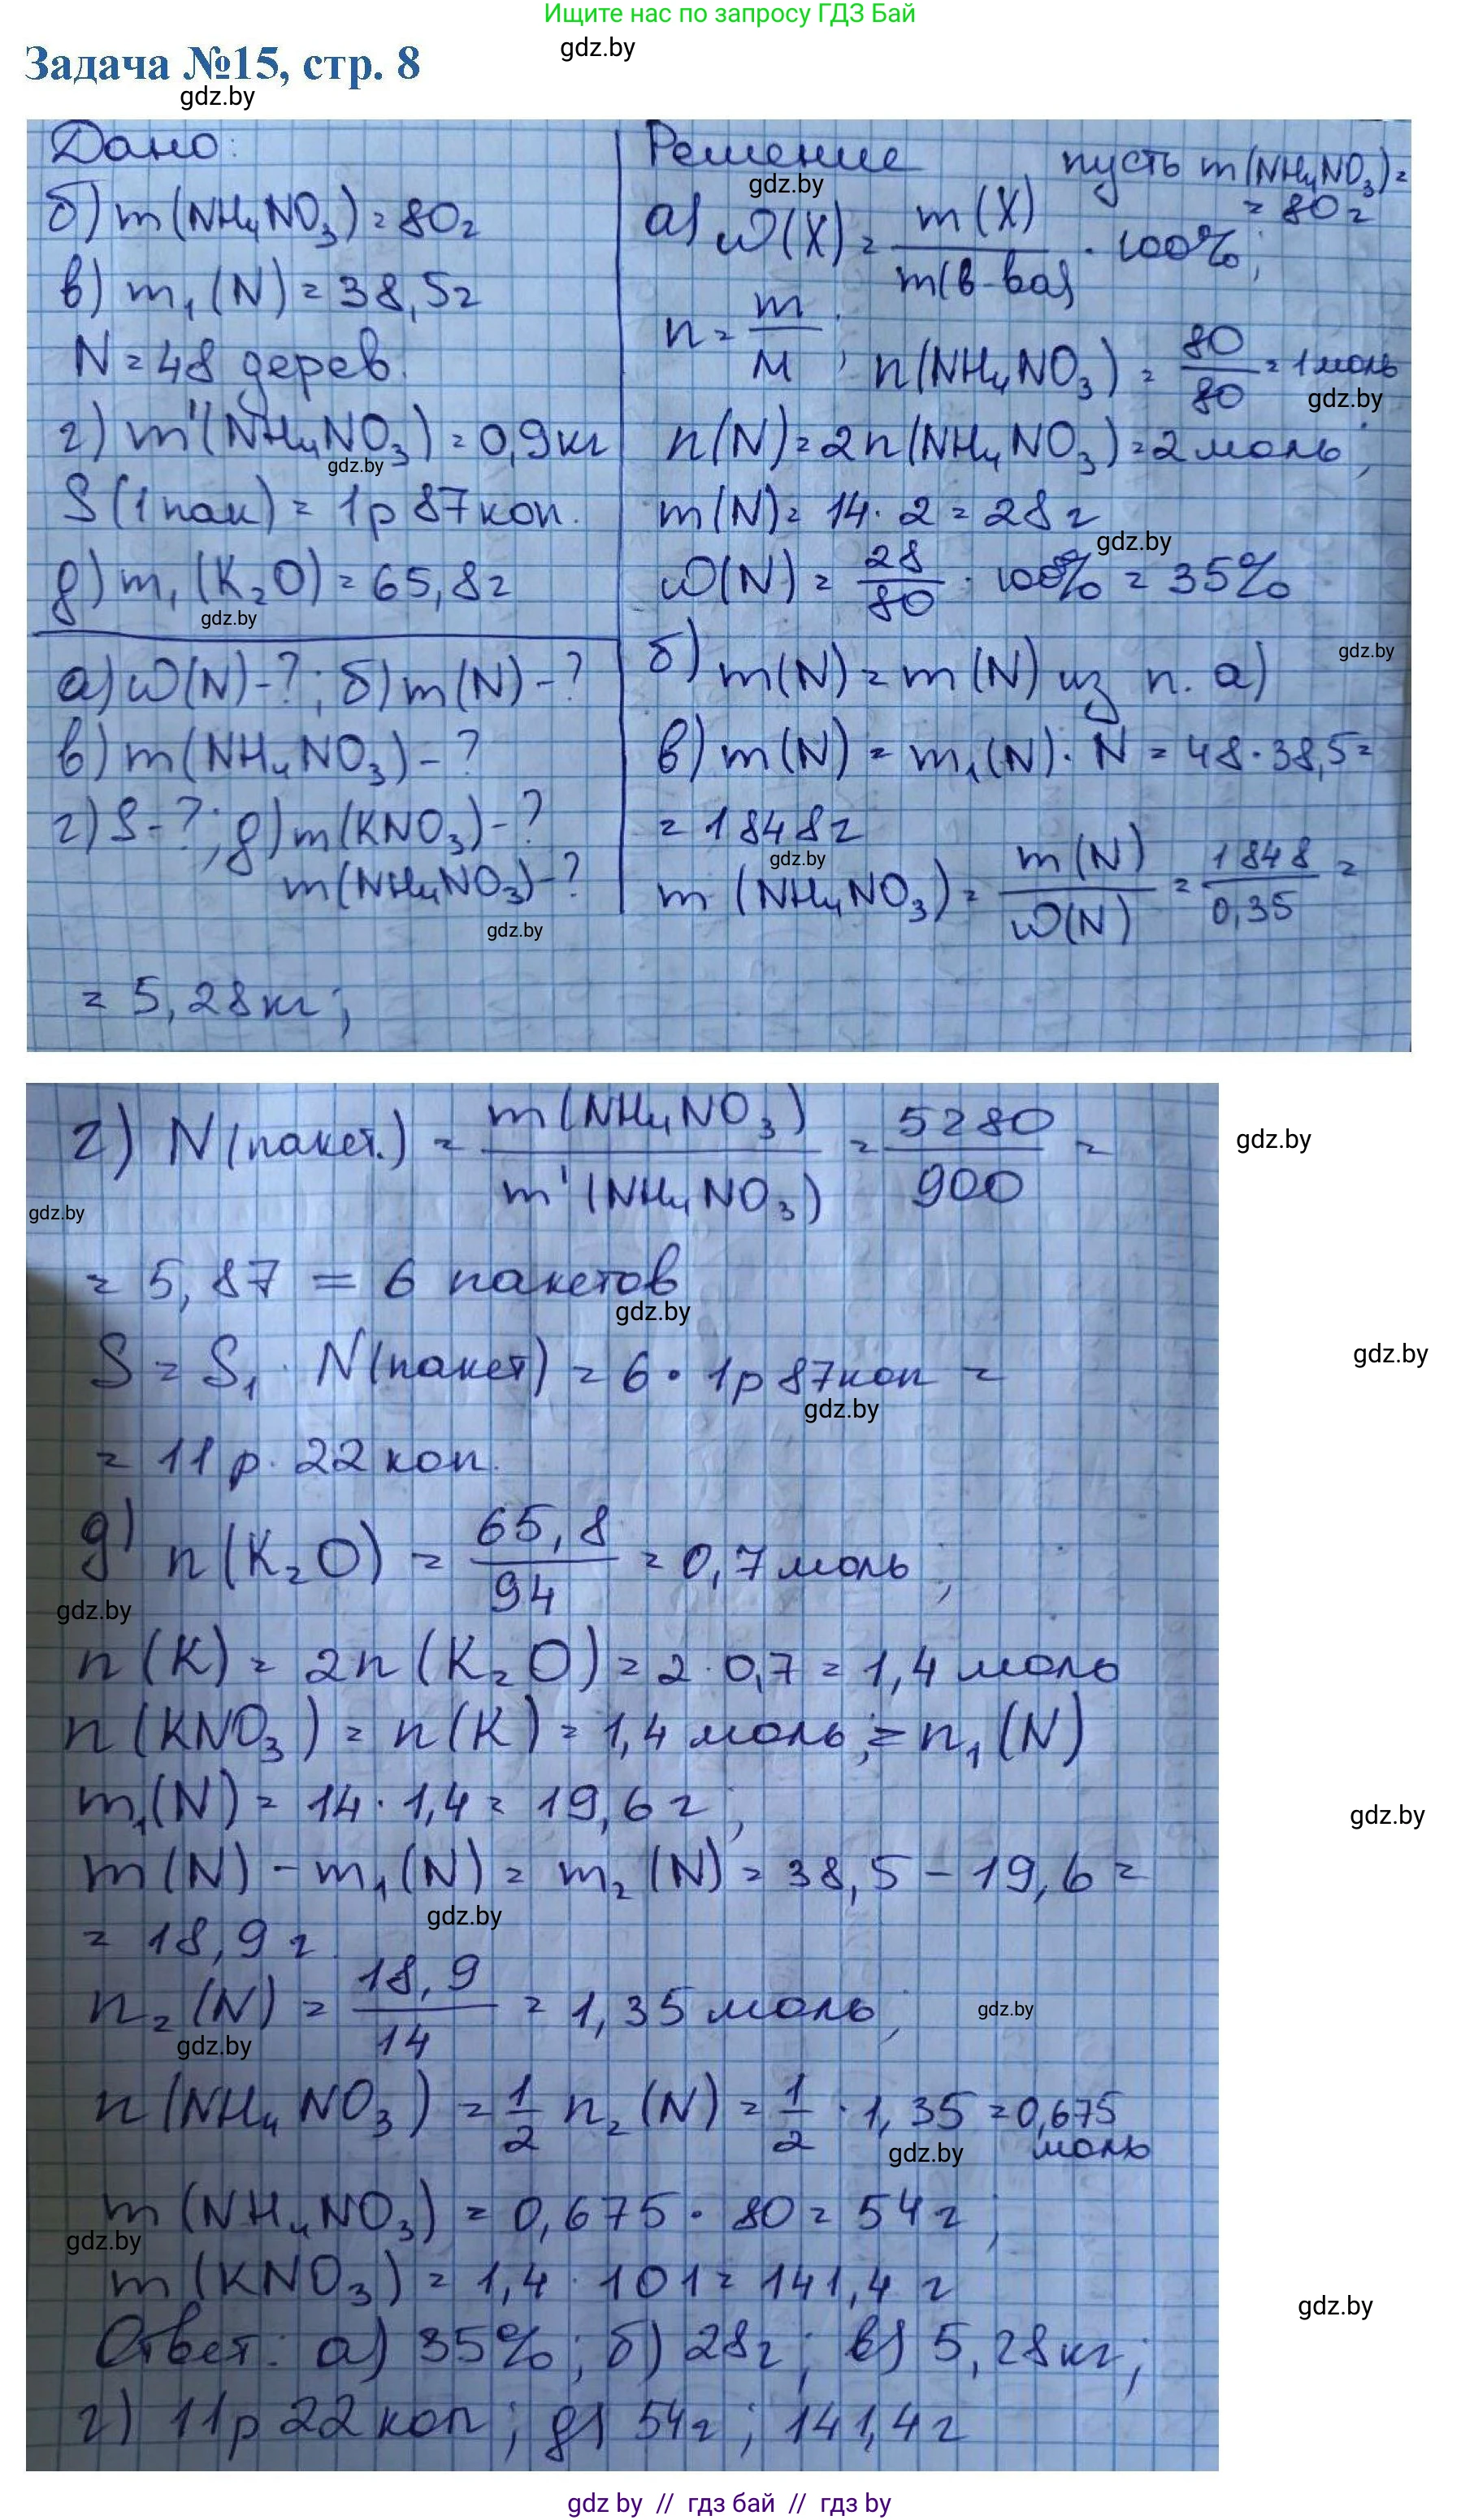 Ищите нас по запросу ГДЗ Бай
gdz.by
Задача №15, стр. 8
gdz.by
Дано:
б) m(NH₄NO₃) = 80г
в) m₁(N) = 38,5г
N = 48 дерев.
г) m'(NH₄NO₃) = 0,9кг
gdz.by
S(1пак) = 1р 87коп.
д) m₁(K₂O) = 65,8г
gdz.by
а) ω(N)-?; б) m(N)-?
в) m(NH₄NO₃)-?
г) S-?; д) m(KNO₃)-?
m(NH₄NO₃)-?
gdz.by
Решение пусть m(NH₄NO₃) =
gdz.by
= 80г
а) ω(X) = m(X) / m(в-ва) · 100%;
n = m / M; n(NH₄NO₃) = 80 / 80 = 1моль
gdz.by
n(N) = 2n(NH₄NO₃) = 2моль;
m(N) = 14 · 2 = 28г
gdz.by
ω(N) = 28 / 80 · 100% = 35%
gdz.by
б) m(N) = m(N) из п. а)
в) m(N) = m₁(N) · N = 48 · 38,5 =
= 1848г
gdz.by
m(NH₄NO₃) = m(N) / ω(N) = 1848 / 0,35 =
= 5,28кг;
г) N(пакет.) = m(NH₄NO₃) / m'(NH₄NO₃) = 5280 / 900 =
gdz.by
gdz.by
= 5,87 = 6 пакетов
gdz.by
S = S₁ · N(пакет) = 6 · 1р 87коп =
gdz.by
gdz.by
= 11р. 22коп.
д) n(K₂O) = 65,8 / 94 = 0,7моль;
gdz.by
n(K) = 2n(K₂O) = 2 · 0,7 = 1,4 моль
n(KNO₃) = n(K) = 1,4 моль; = n₁(N)
m₁(N) = 14 · 1,4 = 19,6г;
gdz.by
m(N) - m₁(N) = m₂(N) = 38,5 - 19,6 =
gdz.by
= 18,9г
n₂(N) = 18,9 / 14 = 1,35 моль;
gdz.by
gdz.by
n(NH₄NO₃) = 1/2 n₂(N) = 1/2 · 1,35 = 0,675
моль
gdz.by
m(NH₄NO₃) = 0,675 · 80 = 54г;
gdz.by
m(KNO₃) = 1,4 · 101 = 141,4г
gdz.by
Ответ: а) 35%; б) 28г; в) 5,28кг;
г) 11р 22коп; д) 54г; 141,4г
gdz by // гдз бай // гдз by